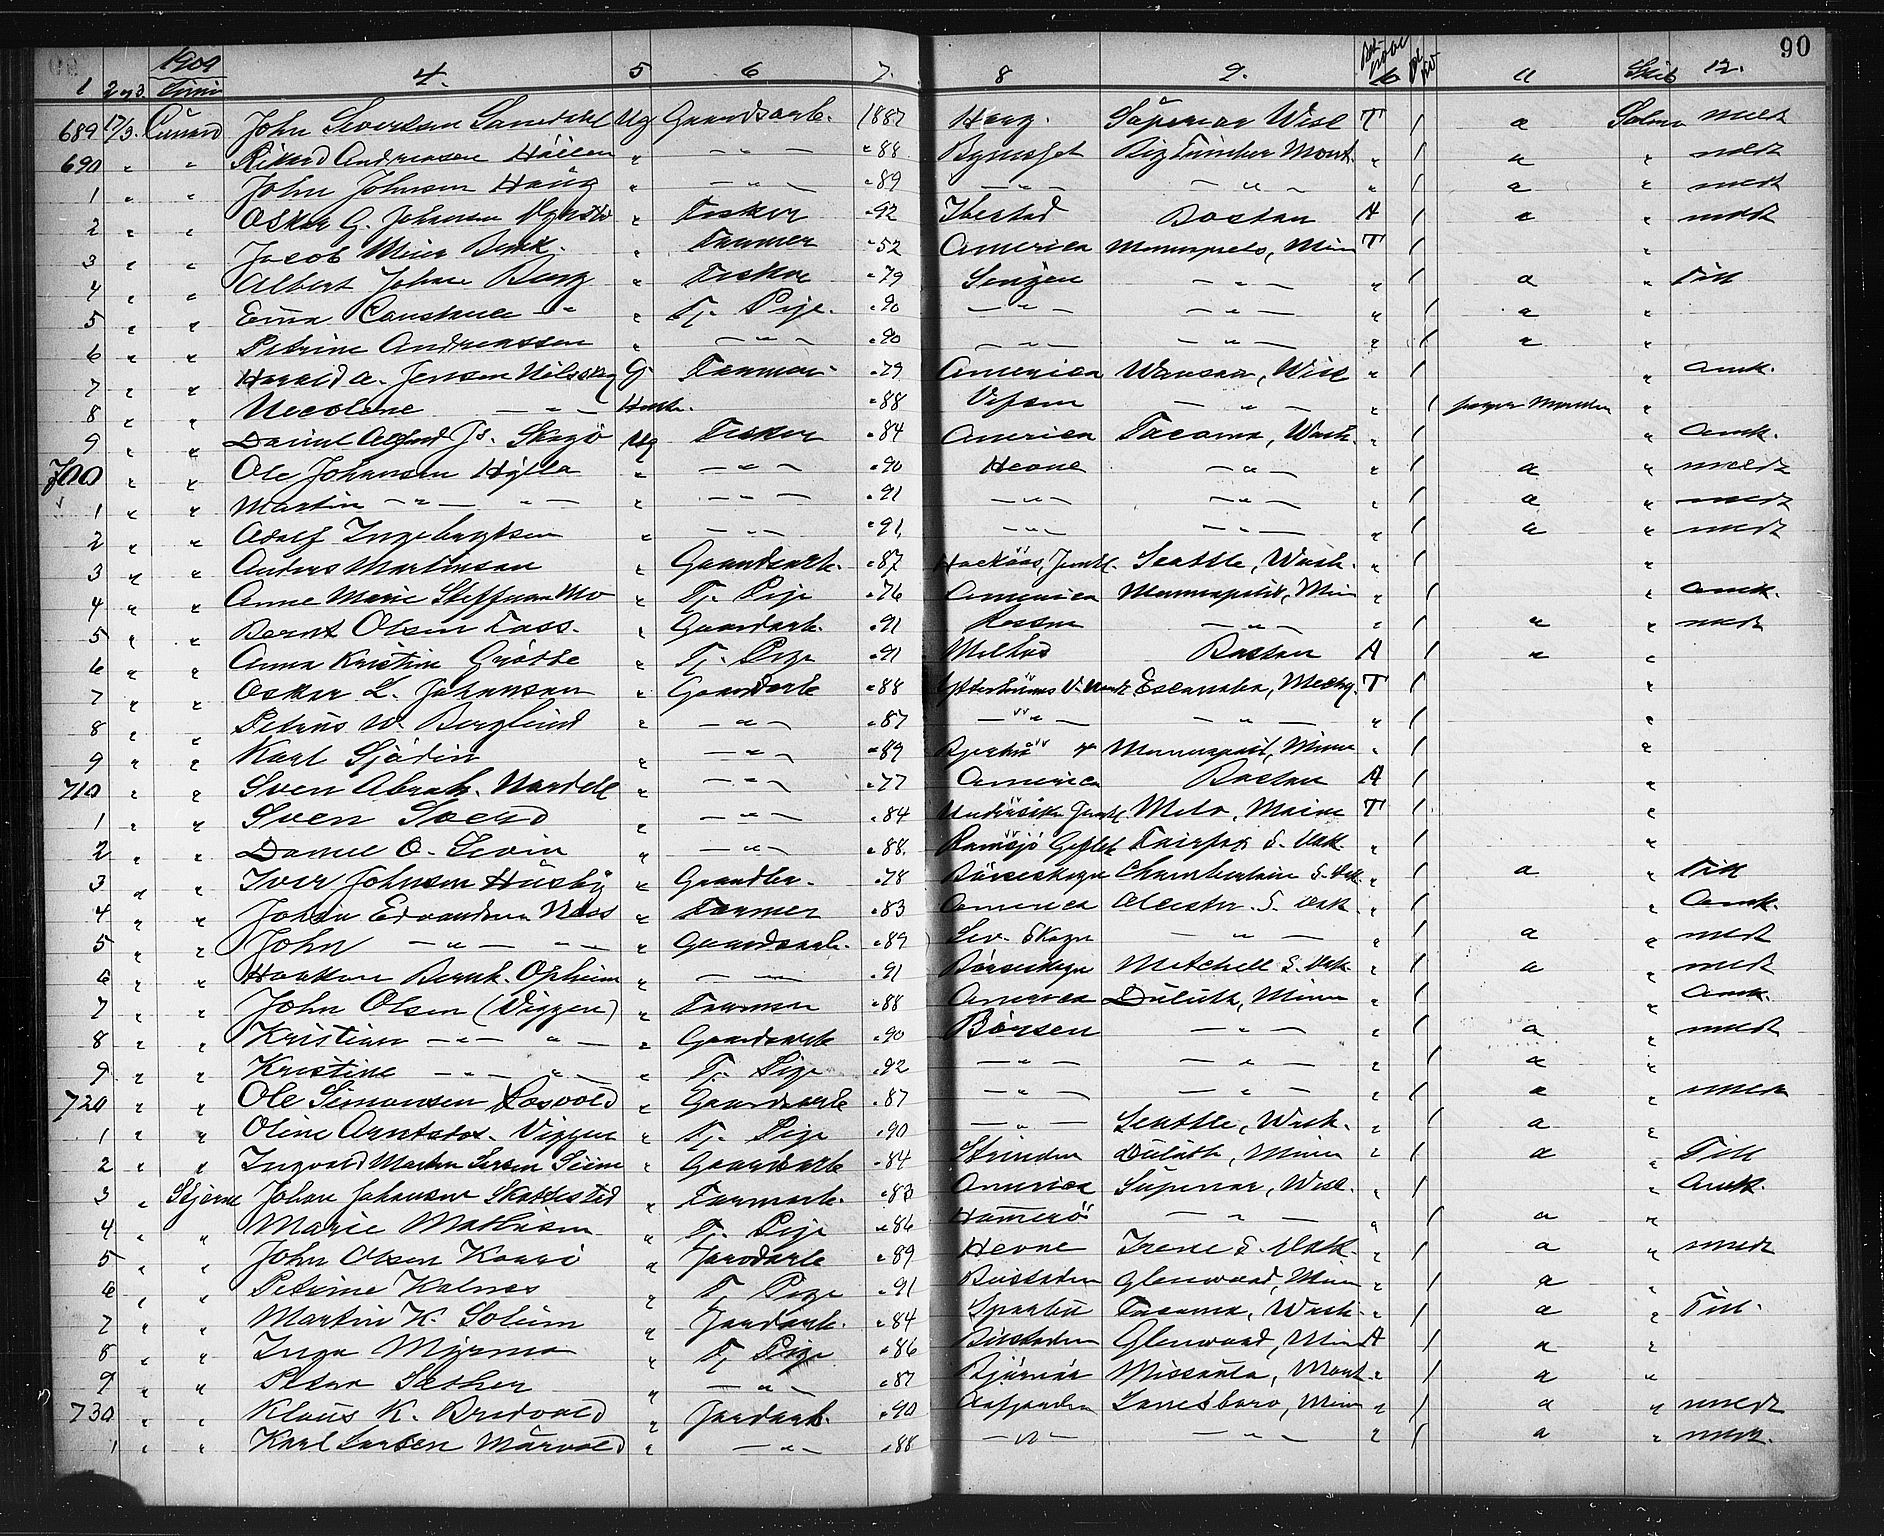 1909 90
1 2 og 3. Linie 4. 5 6 7. 8 9. 11 Skib 12.
689 17/3. Cunard John Severksen Ug Gaardsarb. 1887 Haug. Superior Wisc T / a Salmo meldt
690 " " Rikard Andreassen " — " — " 88 Bynesset Big Timber Mont. " / a " meldt
1 " " John Johnsen Haug " — " — " 89 — " — — " — " / a " meldt
2 " " Oskar G. Johansen " Fisker " 92 Ibestad Boston A / a " meldt
3 " " Jacob Meier Berk. " Farmer " 52 America Minneapolis, Min T / "
4 " " Albert Johan Berg " Fisker " 79 Senjen — " — " / a " Till
5 " " Emma Konstanse — " " Tj. Pige. " 90 — " — — " — " / a "
6 " " Petrine Andreassen " — " — " 90 — " — — " — " / a "
7 " " Harald A. Jensen G. Farmer " 79 America Wausau, Wisc " / " Amk.
8 " " Nicoline — " — Hustr. " 88 Vefsen — " — " / "
9 " " Daniel Alfred Js. Skagö Ug Fisker " 84 America Tacoma, Wash " / " Amk.
700 " " Ole Johansen Hylla " — " — " 90 Hevne — " — " / a " meldt
1 " " Martin — " — " — " — " — " 91 — " — — " — " / a " meldt
2 " " Adolf Ingebrigtsen " — " — " 91 — " — — " — " / a " meldt
3 " " Anders Martinsen " Gaardsarb. " 87 Hackåas, Jemtl. Seattle, Wash. " / "
4 " " Anne Marie Steffensen Mo " Tj. Pige " 76 America Minneapolis, Min " / " Amk.
5 " " Bernt Olsen Foss. " Gaardarb. " 91 — " — " / a " meldt
6 " " Anna Kristine " Tj. Pige " 91 Melhus Boston A / a "
7 " " Oskar L. Johansen " Gaardarb " 88 Escanaba, Mich. T / "
8 " " Petrus W. Berglund " — " — " 87 — " — — " — " / "
9 " " Karl Sjödin " — " — " 89 Minneapolis, Minn " / "
710 " " Sven Abrah. Nordell " — " — " 77 America Boston A / "
1 " " Sven Sverd " — " — " 84 Undersåker Jemtl Milo, Maine T / "
2 " " Daniel O. Levin " — " — " 88. Ramsjö Gefleb Fairfax S. Dak. " / "
3 " " Iver Johnsen Husby " Gaardbr. " 78 Börseskogn Chamberlain S. Dak. " / a " Till
4 " " Johan Edvardsen Næss " Farmer " 83 America Alcester S. Dak. " / " Amk.
5 " " John — " — — " — " Gaardsarb. " 89 Lev. Skogn — " — " / a " meldt
6 " " Haakon Bernh. Opheim " — " — " 91 Börseskogn Mitchell S. Dak. " / a " meldt
7 " " John Olsen (Viggen) " Farmer " 88 America Duluth, Minn " / " Amk.
8 " " Kristian — " — " — " Gaardsarb " 90 Börsen — " — " / a " meldt
9 " " Kristine — " — " — " Tj. Pige " 92 — " — — " — " / a "
720 " " Ole Simonsen " Gaardsarb " 87 — " — — " — " / a " meldt
1 " " Oline Arntsdtr. Viggen " Tj. Pige " 90 — " — Seattle, Wash. " / a "
2 " " Ingvald Martin Larsen " Gaardsarb " 84 Strinden Duluth, Minn " / a " Till
3 " Stjerne Johan Johansen " Farmarb. " 83 America Superior, Wisc. " / " Amk.
4 " " Marie Mathisen " Tj. Pige " 86 Hammerö — " — " / a "
5 " " John Olsen " Jordarb " 89 Hevne Irene S. Dak. " / a " meldt
6 " " Petrine Kolnes " Tj. Pige " 91 Glenwood, Minn " / a "
7 " " Martin K. Solum " Jordarb. " 84 Sparbu Tacoma, Wash. " / a " Till.
8 " " Inga Myrmo " Tj. Pige " 86 Glenwood, Min A / a "
9 " " Petra Sæther " — " — " 87 Bjørnör Missoula, Mont. " / a "
730 " " Klaus K. Bredvold " Jordarb. " 90 Aafjorden Lanesboro, Minn " / a " meldt
1 " " Karl Larsen Mårvold " — " — " 88 — " — — " — " / a " meldt.